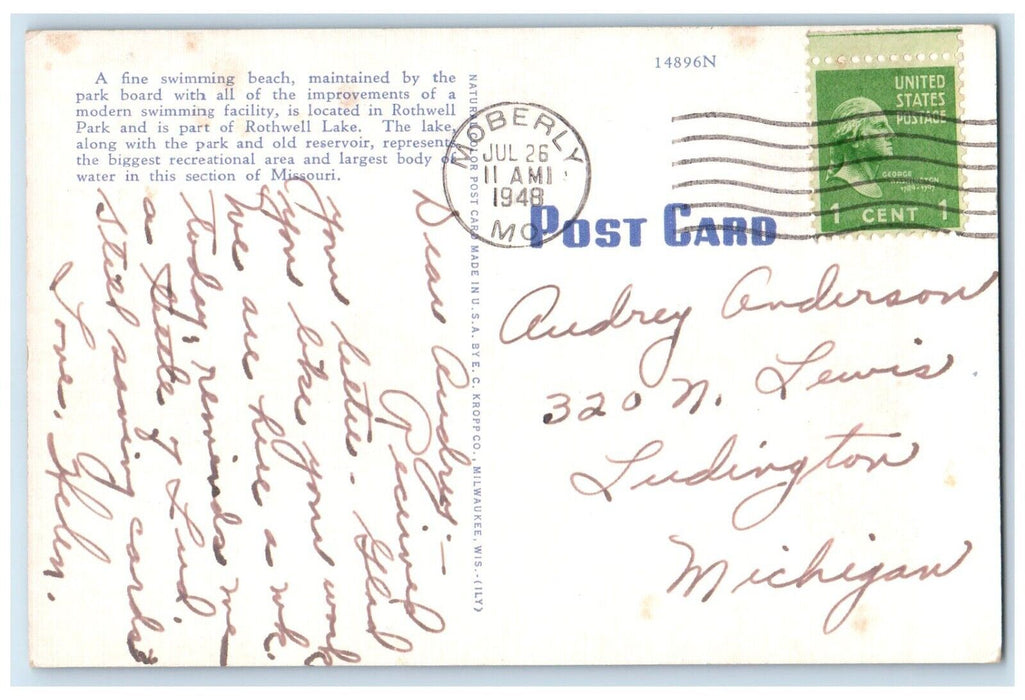 A fine swimming beach, maintained by the
park board with all of the improvements of a
modern swimming facility, is located in Rothwell
Park and is part of Rothwell Lake. The lake,
along with the park and old reservoir, represents
the biggest recreational area and largest body of
water in this section of Missouri.
Dear Audrey:-
Received
your letter. Glad
you like your work
We are here a wk.
today, reminds me
a little of Lud
still saving cards?
Love, Helen.
NATURAL COLOR POST CARD MADE IN U.S.A. BY E. C. KROPP CO., MILWAUKEE, WIS.-(ILY)
14896N
MOBERLY
JUL 26
11 AM
1948
MO.
UNITED
STATES
POSTAGE
GEORGE
WASHINGTON
1789-1797
1 CENT 1
POST CARD
Audrey Anderson
320 N. Lewis
Ludington
Michigan